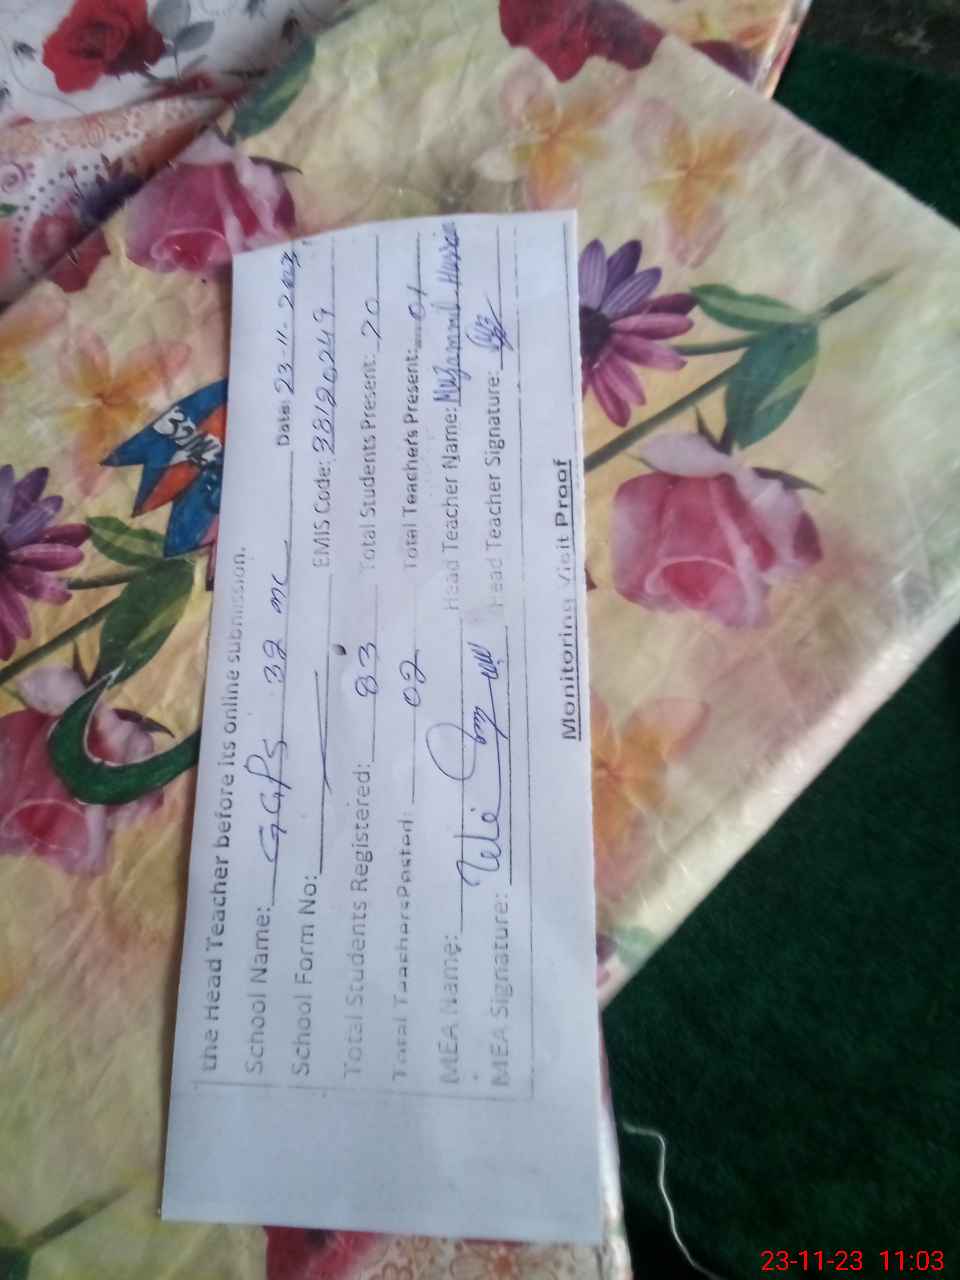 the Head Teacher before its online submission.
School Name: GGPS 32 mc Date: 23-11-2023
School Form No: EMIS Code: 38120249
Total Students Registered: 83 Total Students Present: 20
Total Teachers Posted: 02 Total Teachers Present: 01
MEA Name: Head Teacher Name: Muzammil Hussain
MEA Signature: Head Teacher Signature:
Monitoring Visit Proof
23-11-23 11:03